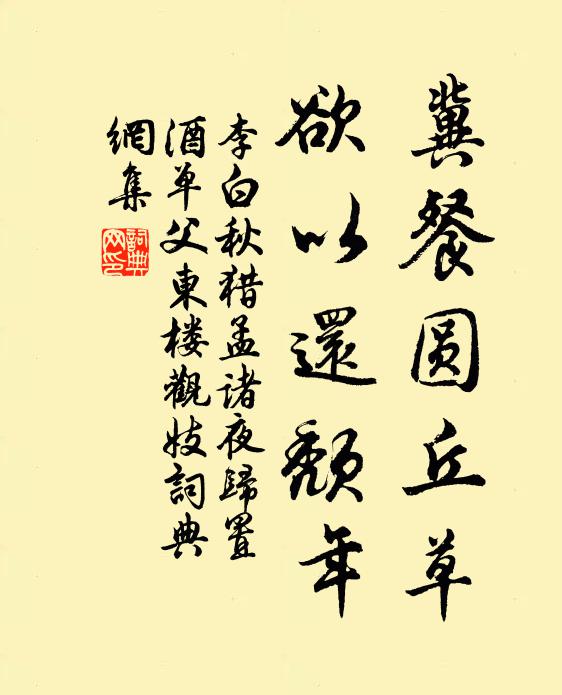 冀餐圆丘草
欲以還頹年
李白秋猎孟诸夜歸置
酒单父東楼觀妓詞典
網集
詞典网印